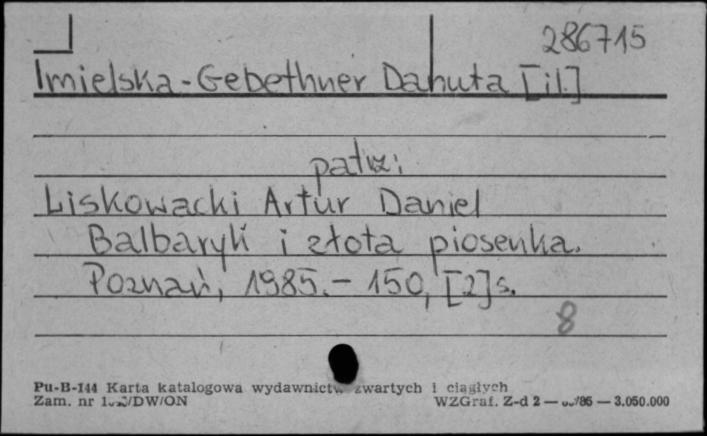 286715
Imielska-Gebethner Danuta [il.]
patrz:
Liskowacki Artur Daniel
Balbaryk i złota piosenka.
Poznań, 1985. - 150, [2] s.
8
Pu-B-144 Karta katalogowa wydawnictw zwartych i ciągłych
Zam. nr /DW/ON WZGraf. Z-d 2 — /86 — 3.050.000